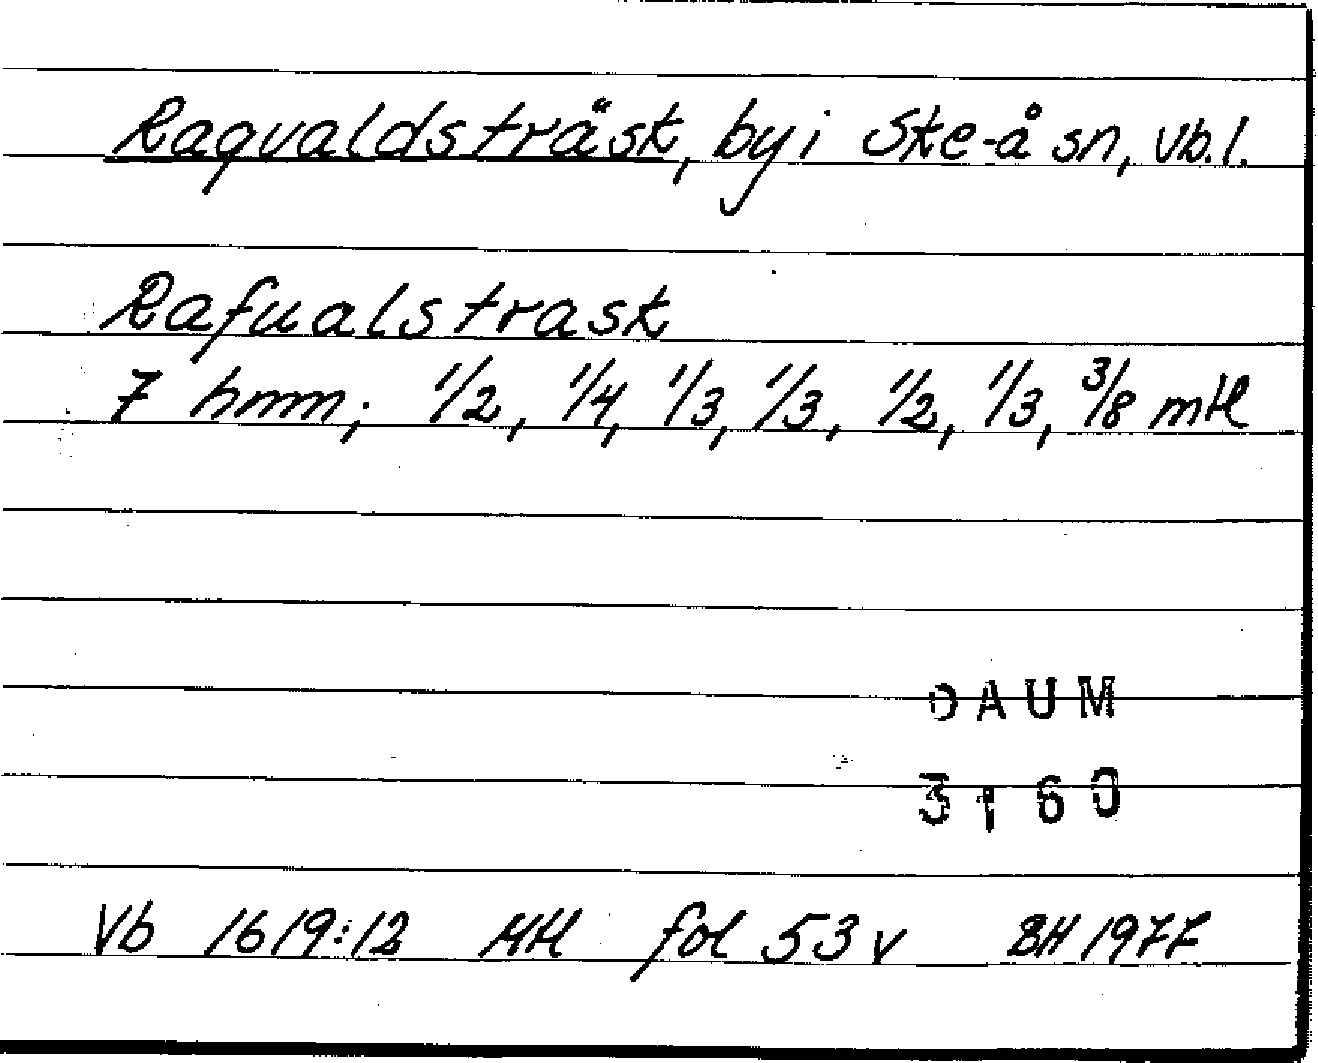 Ragvaldsträsk, by i Ske-å sn, Vb. l.
Rafualstrask
7 hmm; 1/2, 1/4, 1/3, 1/3, 1/2, 1/3, 3/8 mtl
DAUM
3160
Vb 1619:12 MH fol 53 v BH 1977